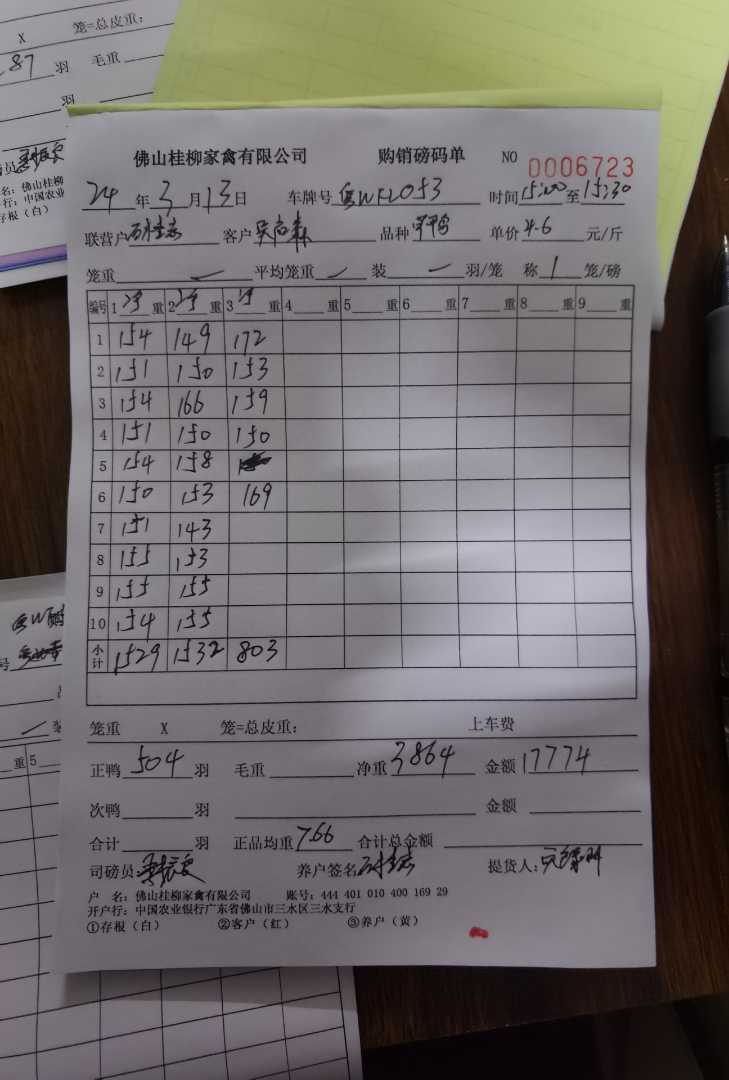 X 笼=总皮重:
87 羽 毛重
羽
佛山桂柳家禽有限公司 购销磅码单 NO 0006723
24 年 3 月 13 日 车牌号 WFL053 时间 15:00 至 15:30
联营户 客户 品种 单价 4.6 元/斤
笼重 平均笼重 装 羽/笼 称 1 笼/磅
编号 1 净 重 2 净 重 3 净 重 4 重 5 重 6 重 7 重 8 重 9 重
1 154 149 172
2 151 150 153
3 154 166 159
4 151 150 150
5 154 158
6 150 153 169
7 151 143
8 155 153
9 155 155
10 154 155
小计 1529 1532 803
笼重 X 笼=总皮重: 上车费
正鸭 504 羽 毛重 净重 3864 金额 17774
次鸭 羽 金额
合计 羽 正品均重 7.66 合计总金额
司磅员: 养户签名 提货人:
户 名: 佛山桂柳家禽有限公司 账号: 444 401 010 400 169 29
开户行: 中国农业银行广东省佛山市三水区三水支行
①存根（白） ②客户（红） ③养户（黄）
员
名: 佛山桂柳
行: 中国农业
存根（白）
号
重 5